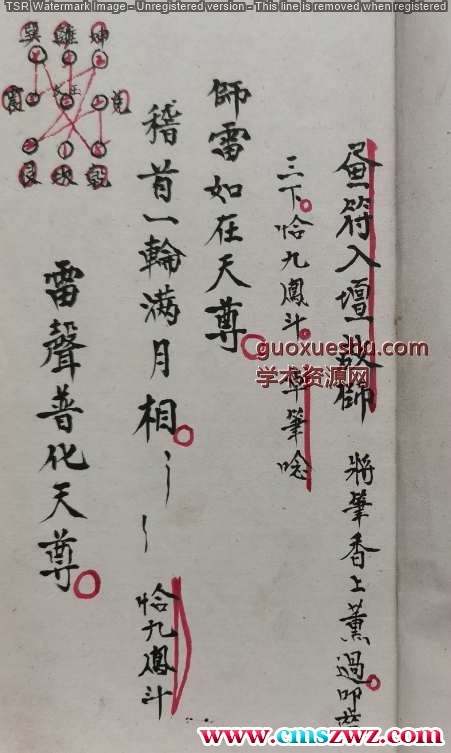 TSR Watermark Image - Unregistered version - This line is removed when registered
符入壇啟師 將筆香上薰過叩齒
三下。恰九鳳斗。卓筆唸
師雷如在天尊。
稽首一輪滿月相。〻〻 恰九鳳斗
雷聲普化天尊。
巽 離 坤
震 兌
艮 坎 乾
guoxueshu.com
学术资源网
www.cmszwz.com